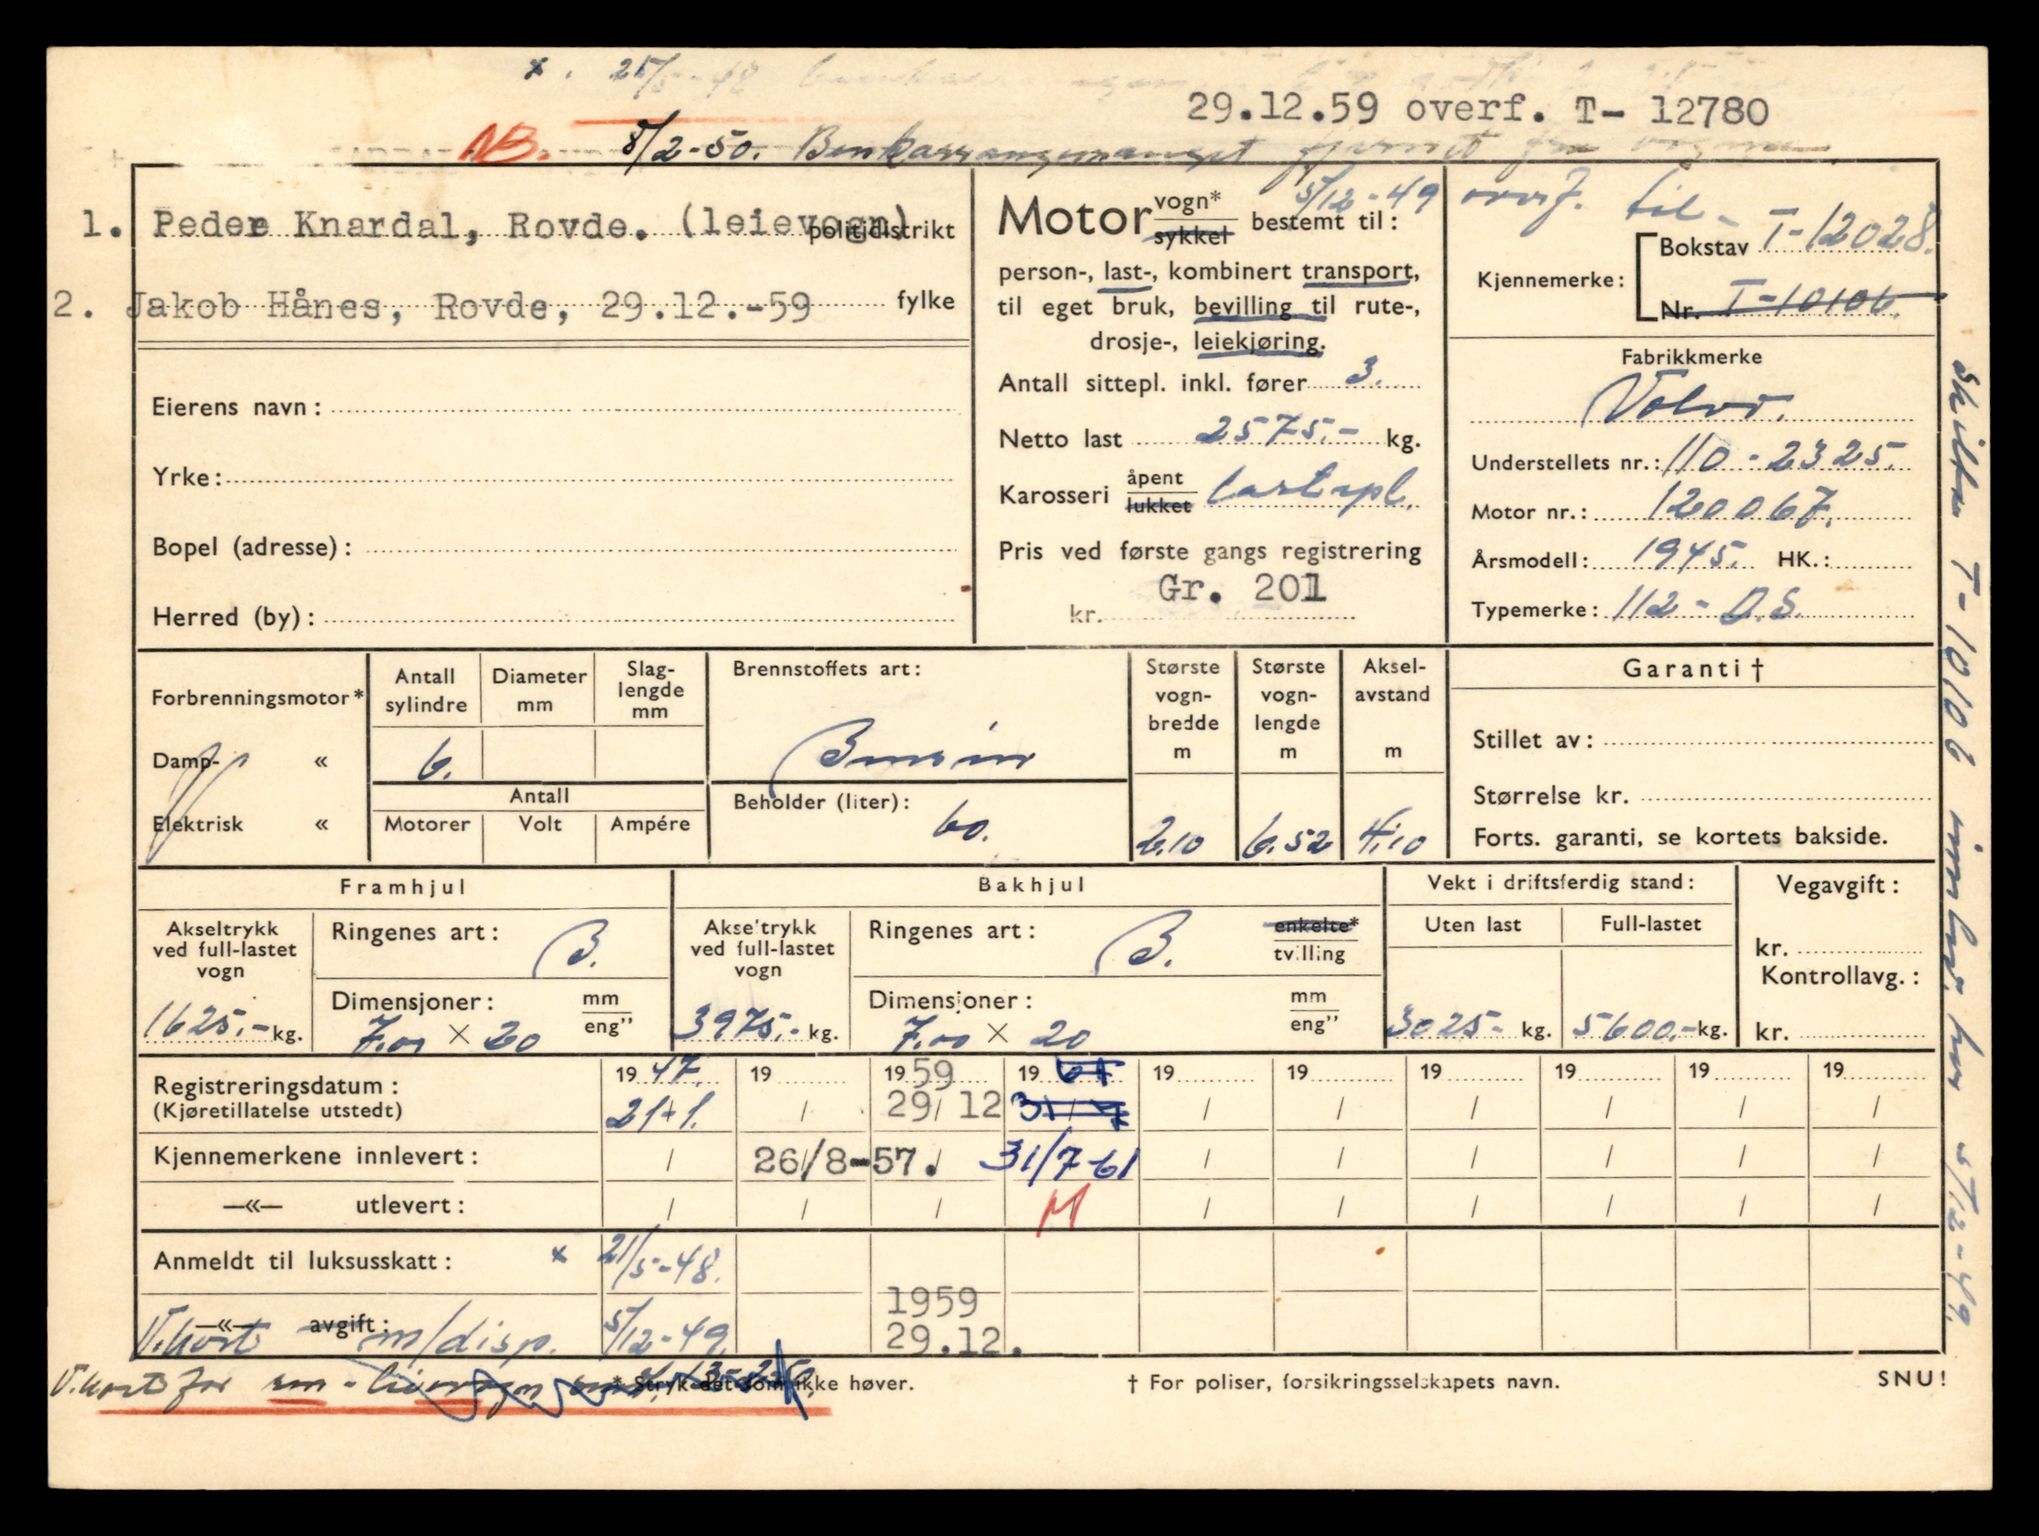 x. 25/5-48
29.12.59 overf. T- 12780
NB. 8/2-50. Benkarrangemanget fjernet fra vogna
1. Peder Knardal, Rovde. (leievogn) politidistrikt
2. Jakob Hånes, Rovde, 29.12.-59 fylke
Eierens navn:
Yrke:
Bopel (adresse):
Herred (by):
Motor vogn* sykkel bestemt til:
person-, last-, kombinert transport,
til eget bruk, bevilling til rute-,
drosje-, leiekjøring.
Antall sittepl. inkl. fører 3.
Netto last 2575.- kg.
Karosseri åpent lukket lastepl.
Pris ved første gangs registrering
Gr. 201
kr.
5/12-49 overf. til -
Kjennemerke: Bokstav T-12028.
Nr. T-10106.
Fabrikkmerke
Volvo.
Understellets nr.: 110-2325.
Motor nr.: 120067.
Årsmodell: 1945. HK.:
Typemerke: 112- D.S.
Skilter T-10106 innlev. her 5/12-49.
Forbrenningsmotor*
Damp- «
Elektrisk «
Antall sylindre
6.
Diameter mm
Slag-lengde mm
Antall
Motorer Volt Ampére
Brennstoffets art:
Bensin
Beholder (liter): 60.
Største vogn-bredde m
2.10
Største vogn-lengde m
6.52
Aksel-avstand m
4.10
Garanti †
Stillet av:
Størrelse kr.
Forts. garanti, se kortets bakside.
Framhjul
Akseltrykk ved full-lastet vogn
1625.- kg.
Ringenes art: B.
Dimensjoner: mm eng"
7.00 × 20
Bakhjul
Akse'trykk ved full-lastet vogn
3975.- kg.
Ringenes art: B. enkelte* tvilling
Dimensjoner: mm eng"
7.00 × 20
Vekt i driftsferdig stand:
Uten last Full-lastet
3025- kg. 5600.- kg.
Vegavgift:
kr.
Kontrollavg.:
kr.
Registreringsdatum: 19 47. 19 19 59 19 61 19 19 19 19 19 19
(Kjøretillatelse utstedt) 21/1. / 29/12 31/7 / / / / / /
Kjennemerkene innlevert: / 26/8-57. 31/7-61 / / / / / /
—«— utlevert: / / / M / / / / / /
Anmeldt til luksusskatt: x 21/5-48.
—«— avgift: 1959
V.kort m/disp. 5/12-49. 29.12.
V.kort for
* Stryk det som ikke høver. † For poliser, forsikringsselskapets navn. SNU!